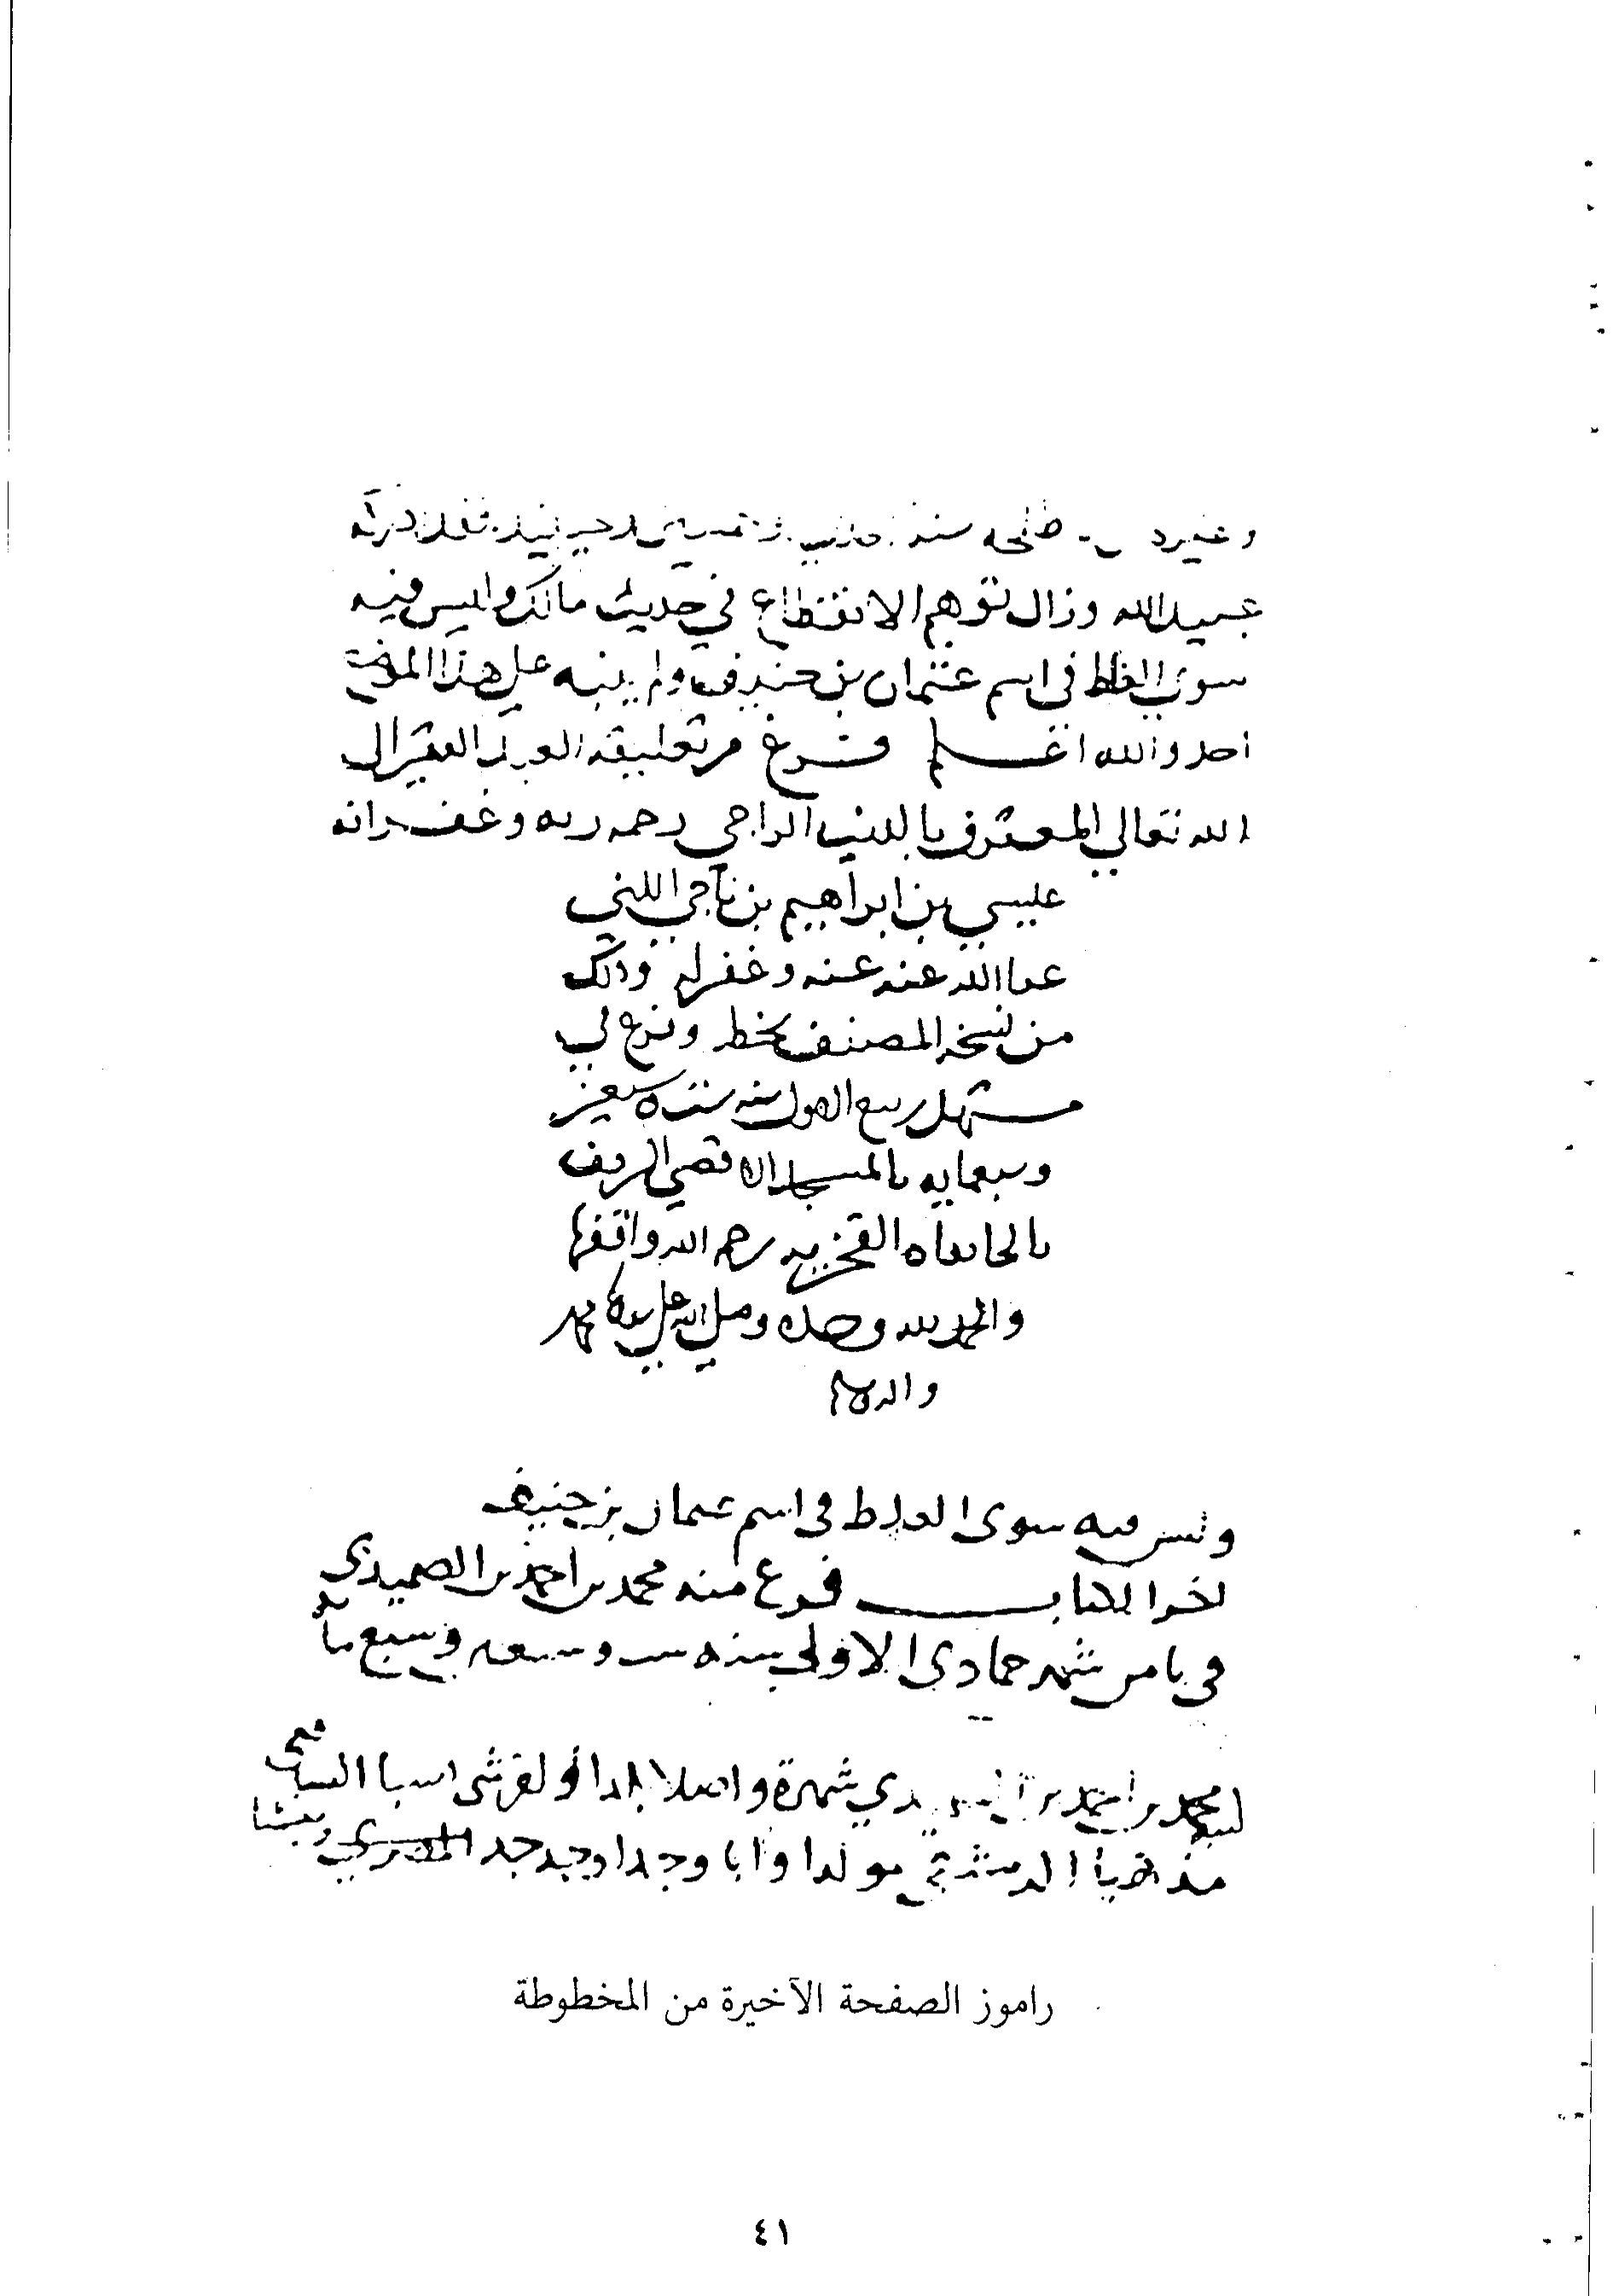 طلحه سنة
عبيد الله وزال توهم الانقطاع في حديث مالك وليس فيه
سوى الغلط في اسم عثمان بن حنيف ولم ينبه على هذا الموضع
احد والله اعلم فرغ من تعليقه العبد الفقير الى
الله تعالي المعترف بالذنب الراجي رحمه ربه وغفرانه
عيسي بن ابراهيم بن ناجي
عفا الله عنه عنه وغفر له وذلك
من نسخه المصنف بخطه
مستهل ربيع الاول سنه
وسبعمايه بالمسجد الاقصي الشريف
بالخانقاه الفخريه رحم الله واقفها
والحمد لله وحده وصلى الله على سيدنا محمد
واله
وليس فيه سوى الغلط في اسم عثمان بن حنيف
اخر الكتاب فرغ منه محمد بن احمد بن
في ثامن شهر جمادى الاولى سنه ست وسبعين وسبع مائة
محمد بن احمد بن شهرة واصلا بلدا القرشى نسبا الشافعي
مذهبا الدمشقي مولدا وابا وجدا وجد جد المصري
راموز الصفحة الأخيرة من المخطوطة
٤١